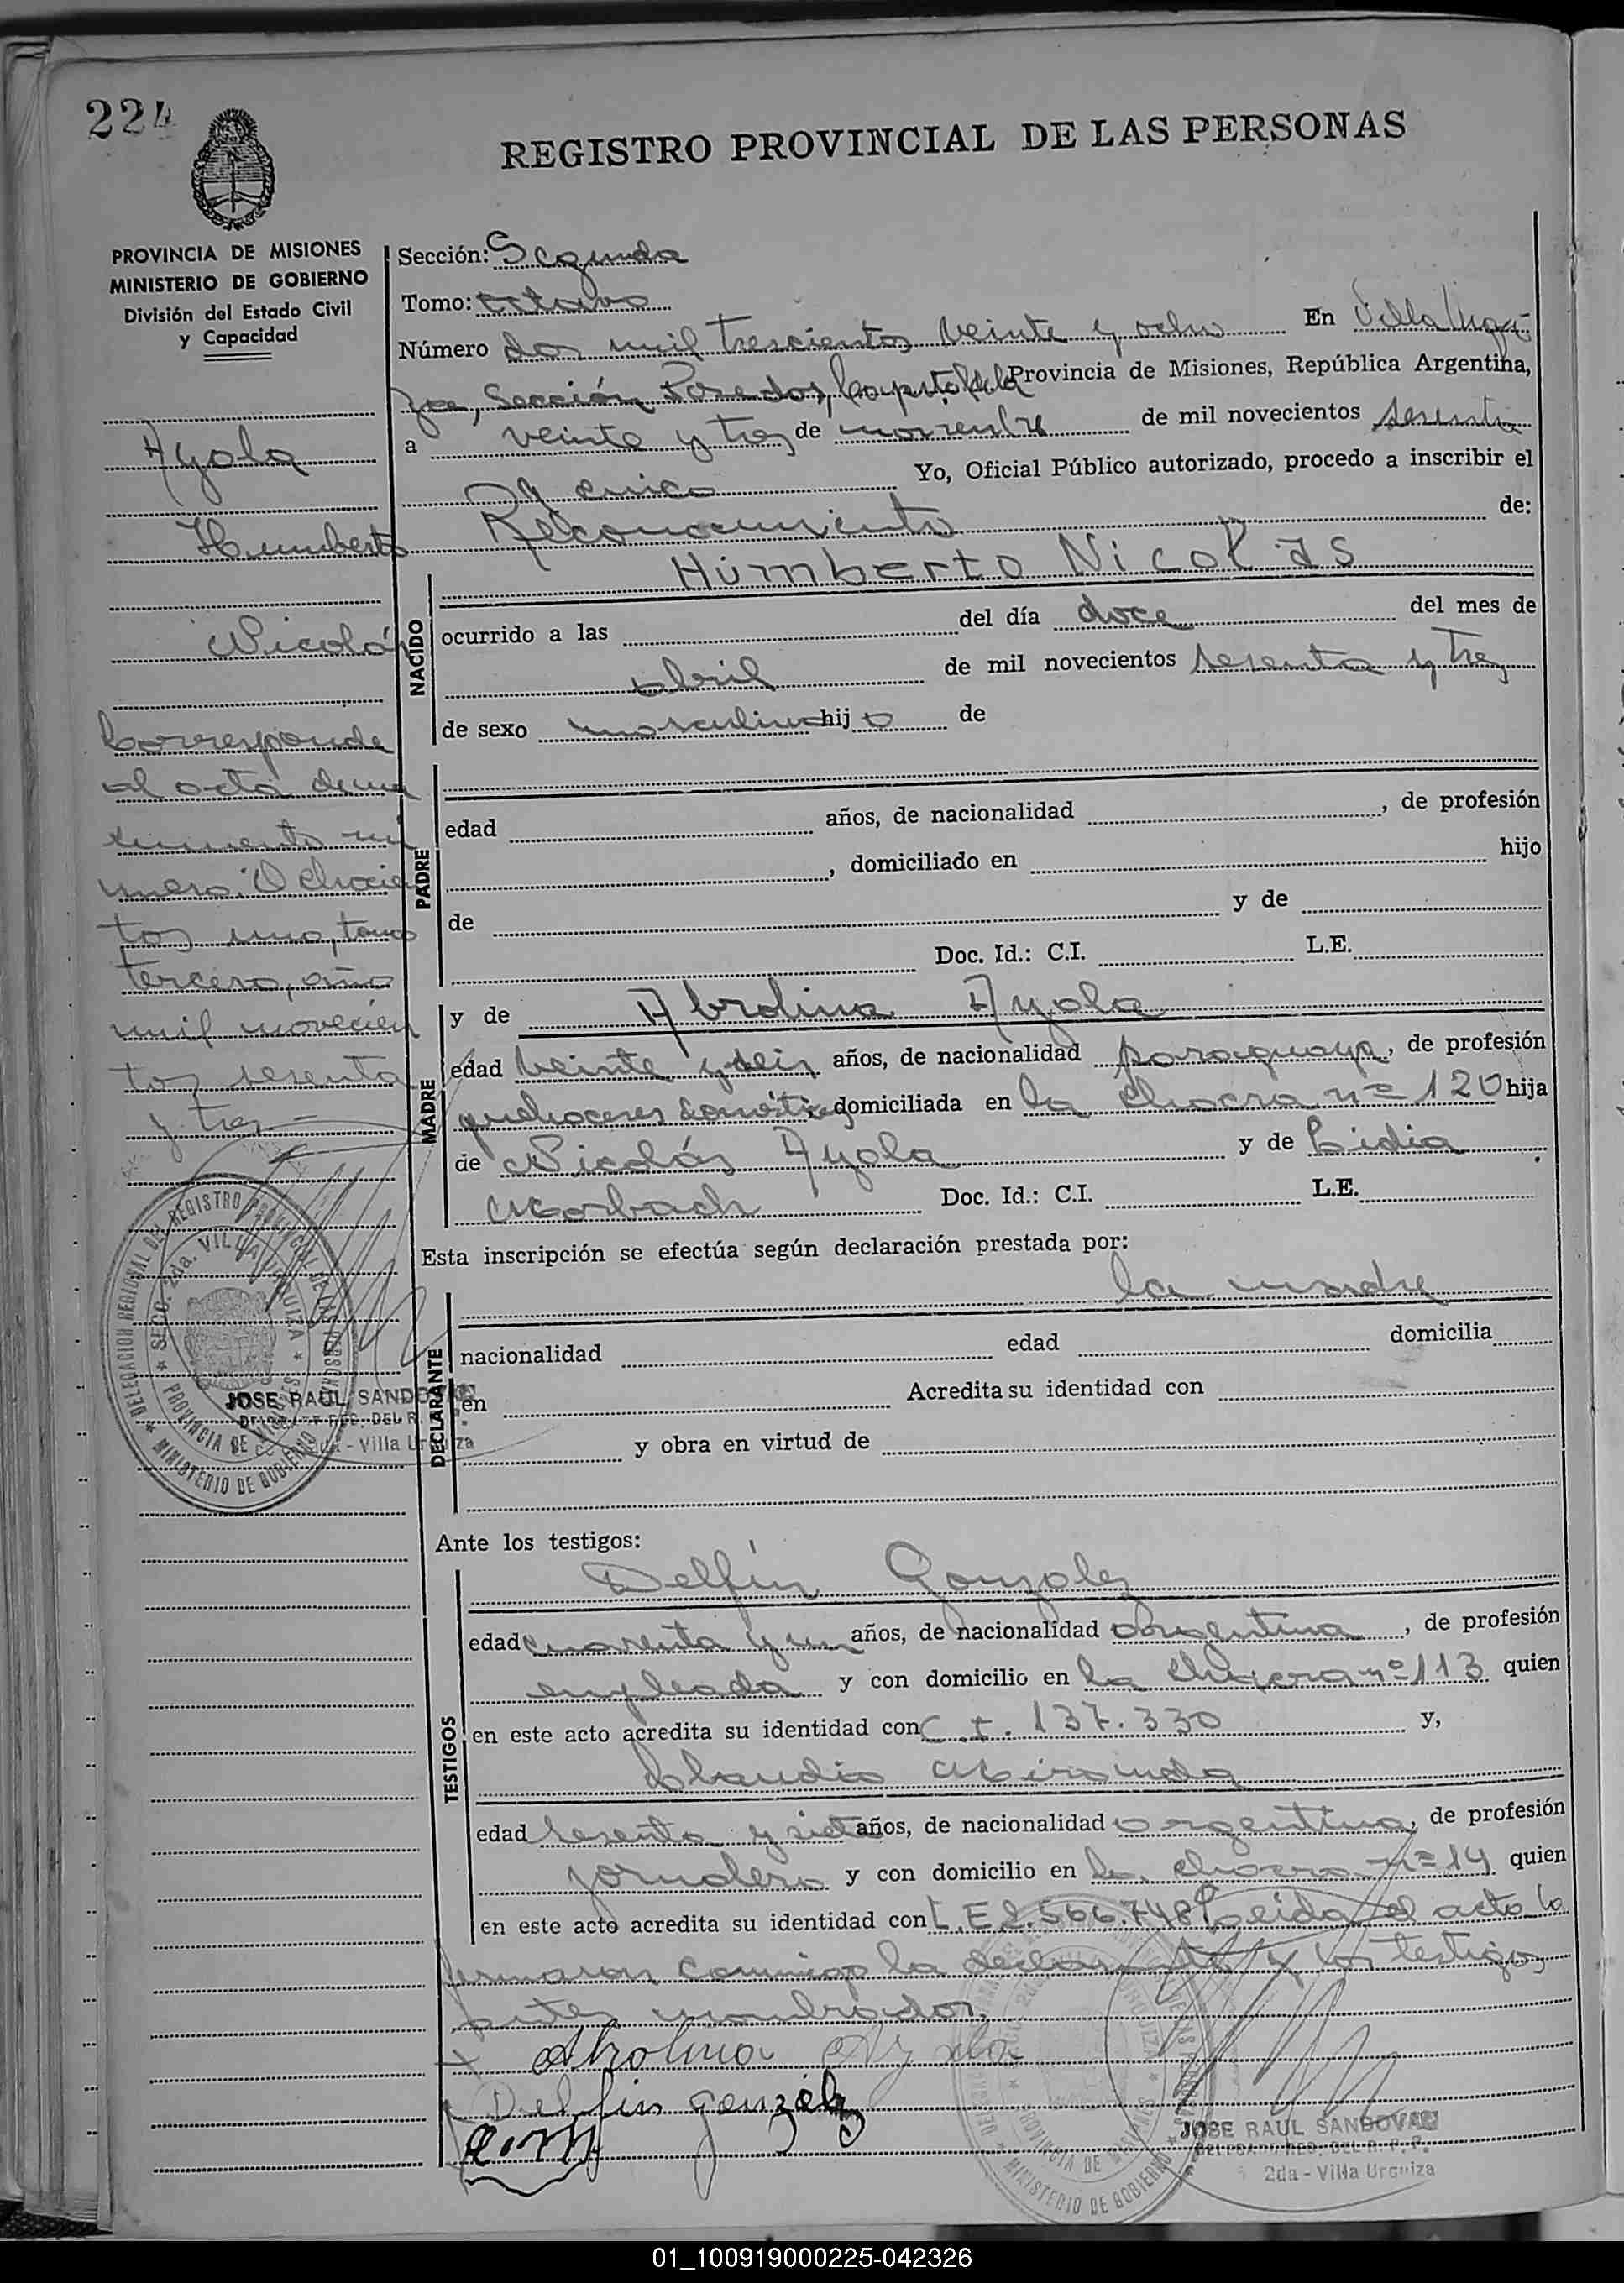 224
REGISTRO PROVINCIAL DE LAS PERSONAS
PROVINCIA DE MISIONES
MINISTERIO DE GOBIERNO
División del Estado Civil
y Capacidad
Ayala
Humberto
Nicolás
Corresponde
al acta de na
cimiento nú
mero: Ochocien
tos uno, tomo
tercero, año
mil novecien
tos sesenta
y tres.-
Sección: Segunda
Tomo: octavo
Número dos mil trescientos veinte y ocho En Villa Urqui
za, Sección Posadas, Capital de la Provincia de Misiones, República Argentina,
a veinte y tres de noviembre de mil novecientos sesenta
y cinco Yo, Oficial Público autorizado, procedo a inscribir el
Reconocimiento de:
NACIDO
Humberto Nicolás
ocurrido a las del día doce del mes de
abril de mil novecientos sesenta y tres
de sexo masculino hijo de
PADRE
edad años, de nacionalidad , de profesión
, domiciliado en hijo
de y de
Doc. Id.: C.I. L.E.
MADRE
y de Abrolina Ayala
edad veinte y seis años, de nacionalidad paraguaya, de profesión
quehaceres domésticos domiciliada en la chacra nº 120 hija
de Nicolás Ayala y de Lidia
Morbach Doc. Id.: C.I. L.E.
Esta inscripción se efectúa según declaración prestada por:
DECLARANTE
la madre
nacionalidad edad domicilia
en Acredita su identidad con
y obra en virtud de
Ante los testigos:
TESTIGOS
Delfín Gonzalez
edad cuarenta y un años, de nacionalidad argentina, de profesión
empleada y con domicilio en la chacra nº 113 quien
en este acto acredita su identidad con C.I. 137.330 y,
Claudio Miranda
edad sesenta y siete años, de nacionalidad argentina, de profesión
jornalero y con domicilio en la chacra nº 14 quien
en este acto acredita su identidad con L.E 2.566.748 Leida el acta la
firmaron conmigo la declarante y los testigos
antes nombrados.
x Abrolina Ayala
Delfin gonzález
C.M
DELEGACION REGIONAL DEL REGISTRO PROVINCIAL DE LAS PERSONAS
SECC. 2da. VILLA URQUIZA
PROVINCIA DE MISIONES
MINISTERIO DE GOBIERNO
JOSE RAUL SANDOVAL
2da - Villa Urquiza
MINISTERIO DE GOBIERNO
PROVINCIA DE MISIONES
JOSE RAUL SANDOVAL
DELEGADO REG. DEL R. P. P.
2da - Villa Urquiza
01_100919000225-042326